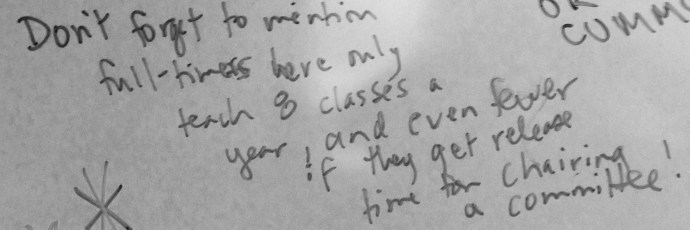 Don't forget to mention
full-timers here only
teach 8 classes a
year! and even fewer
if they get release
time for chairing
a committee!
OR
COMM